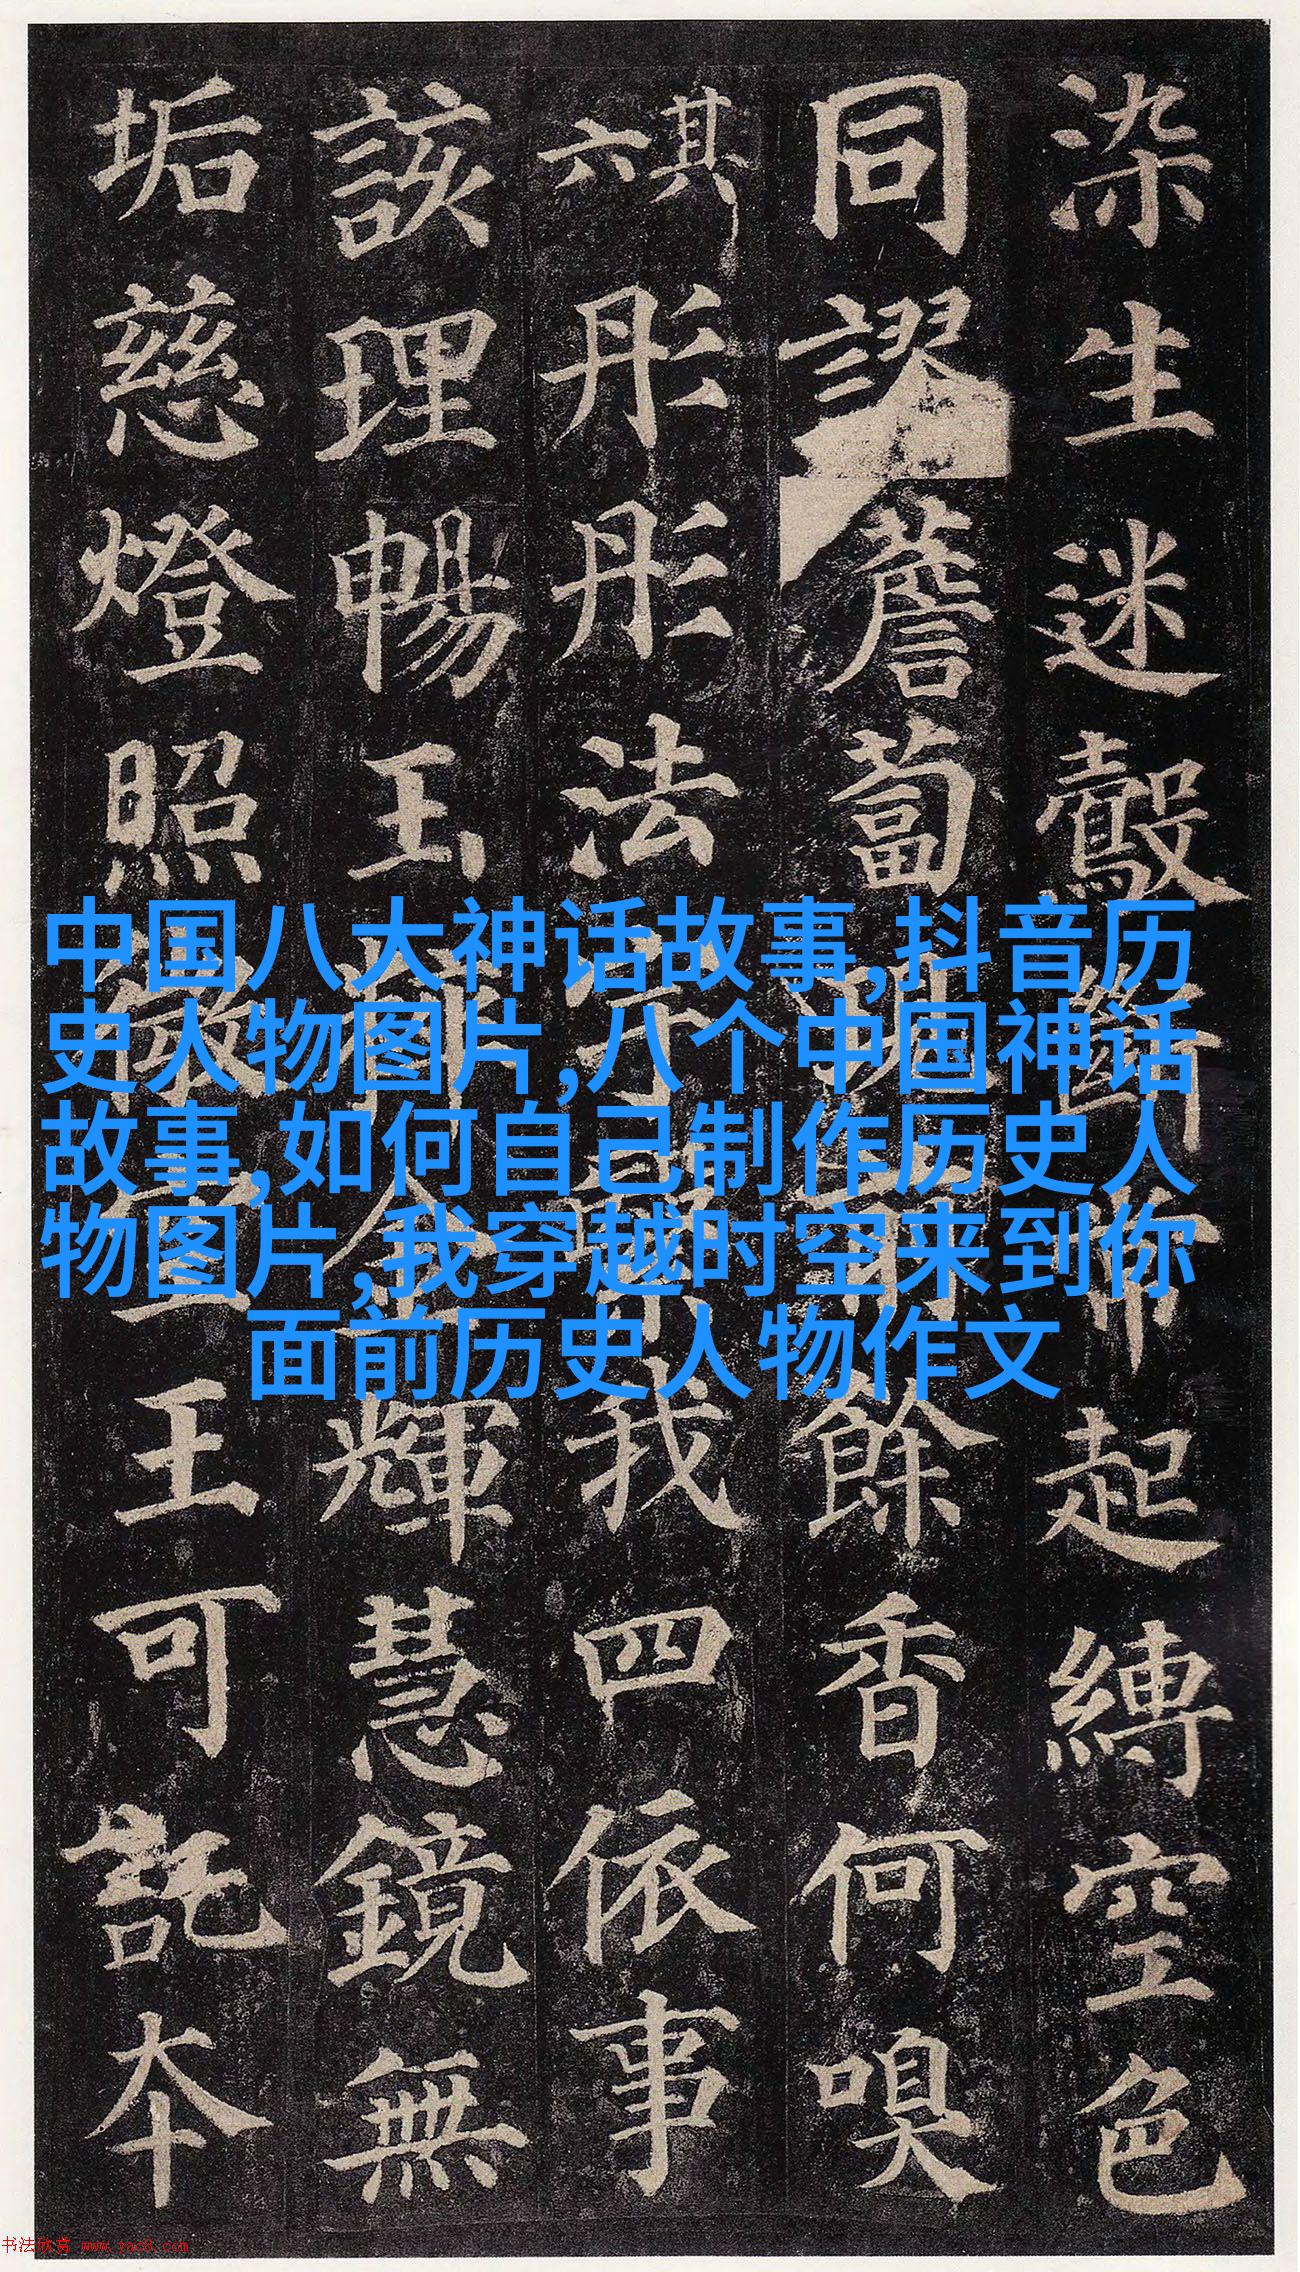 染生迷鷇斷常起縛空色
同謬薝蔔現前餘香何嗅
其六彤彤法宇繄我四依事
該理暢玉粹金輝慧鏡無
垢慈燈照微空王可託本
中国八大神话故事,抖音历
史人物图片,八个中国神话
故事,如何自己制作历史人
物图片,我穿越时空来到你
面前历史人物作文
书法欣赏 www.yac8.com